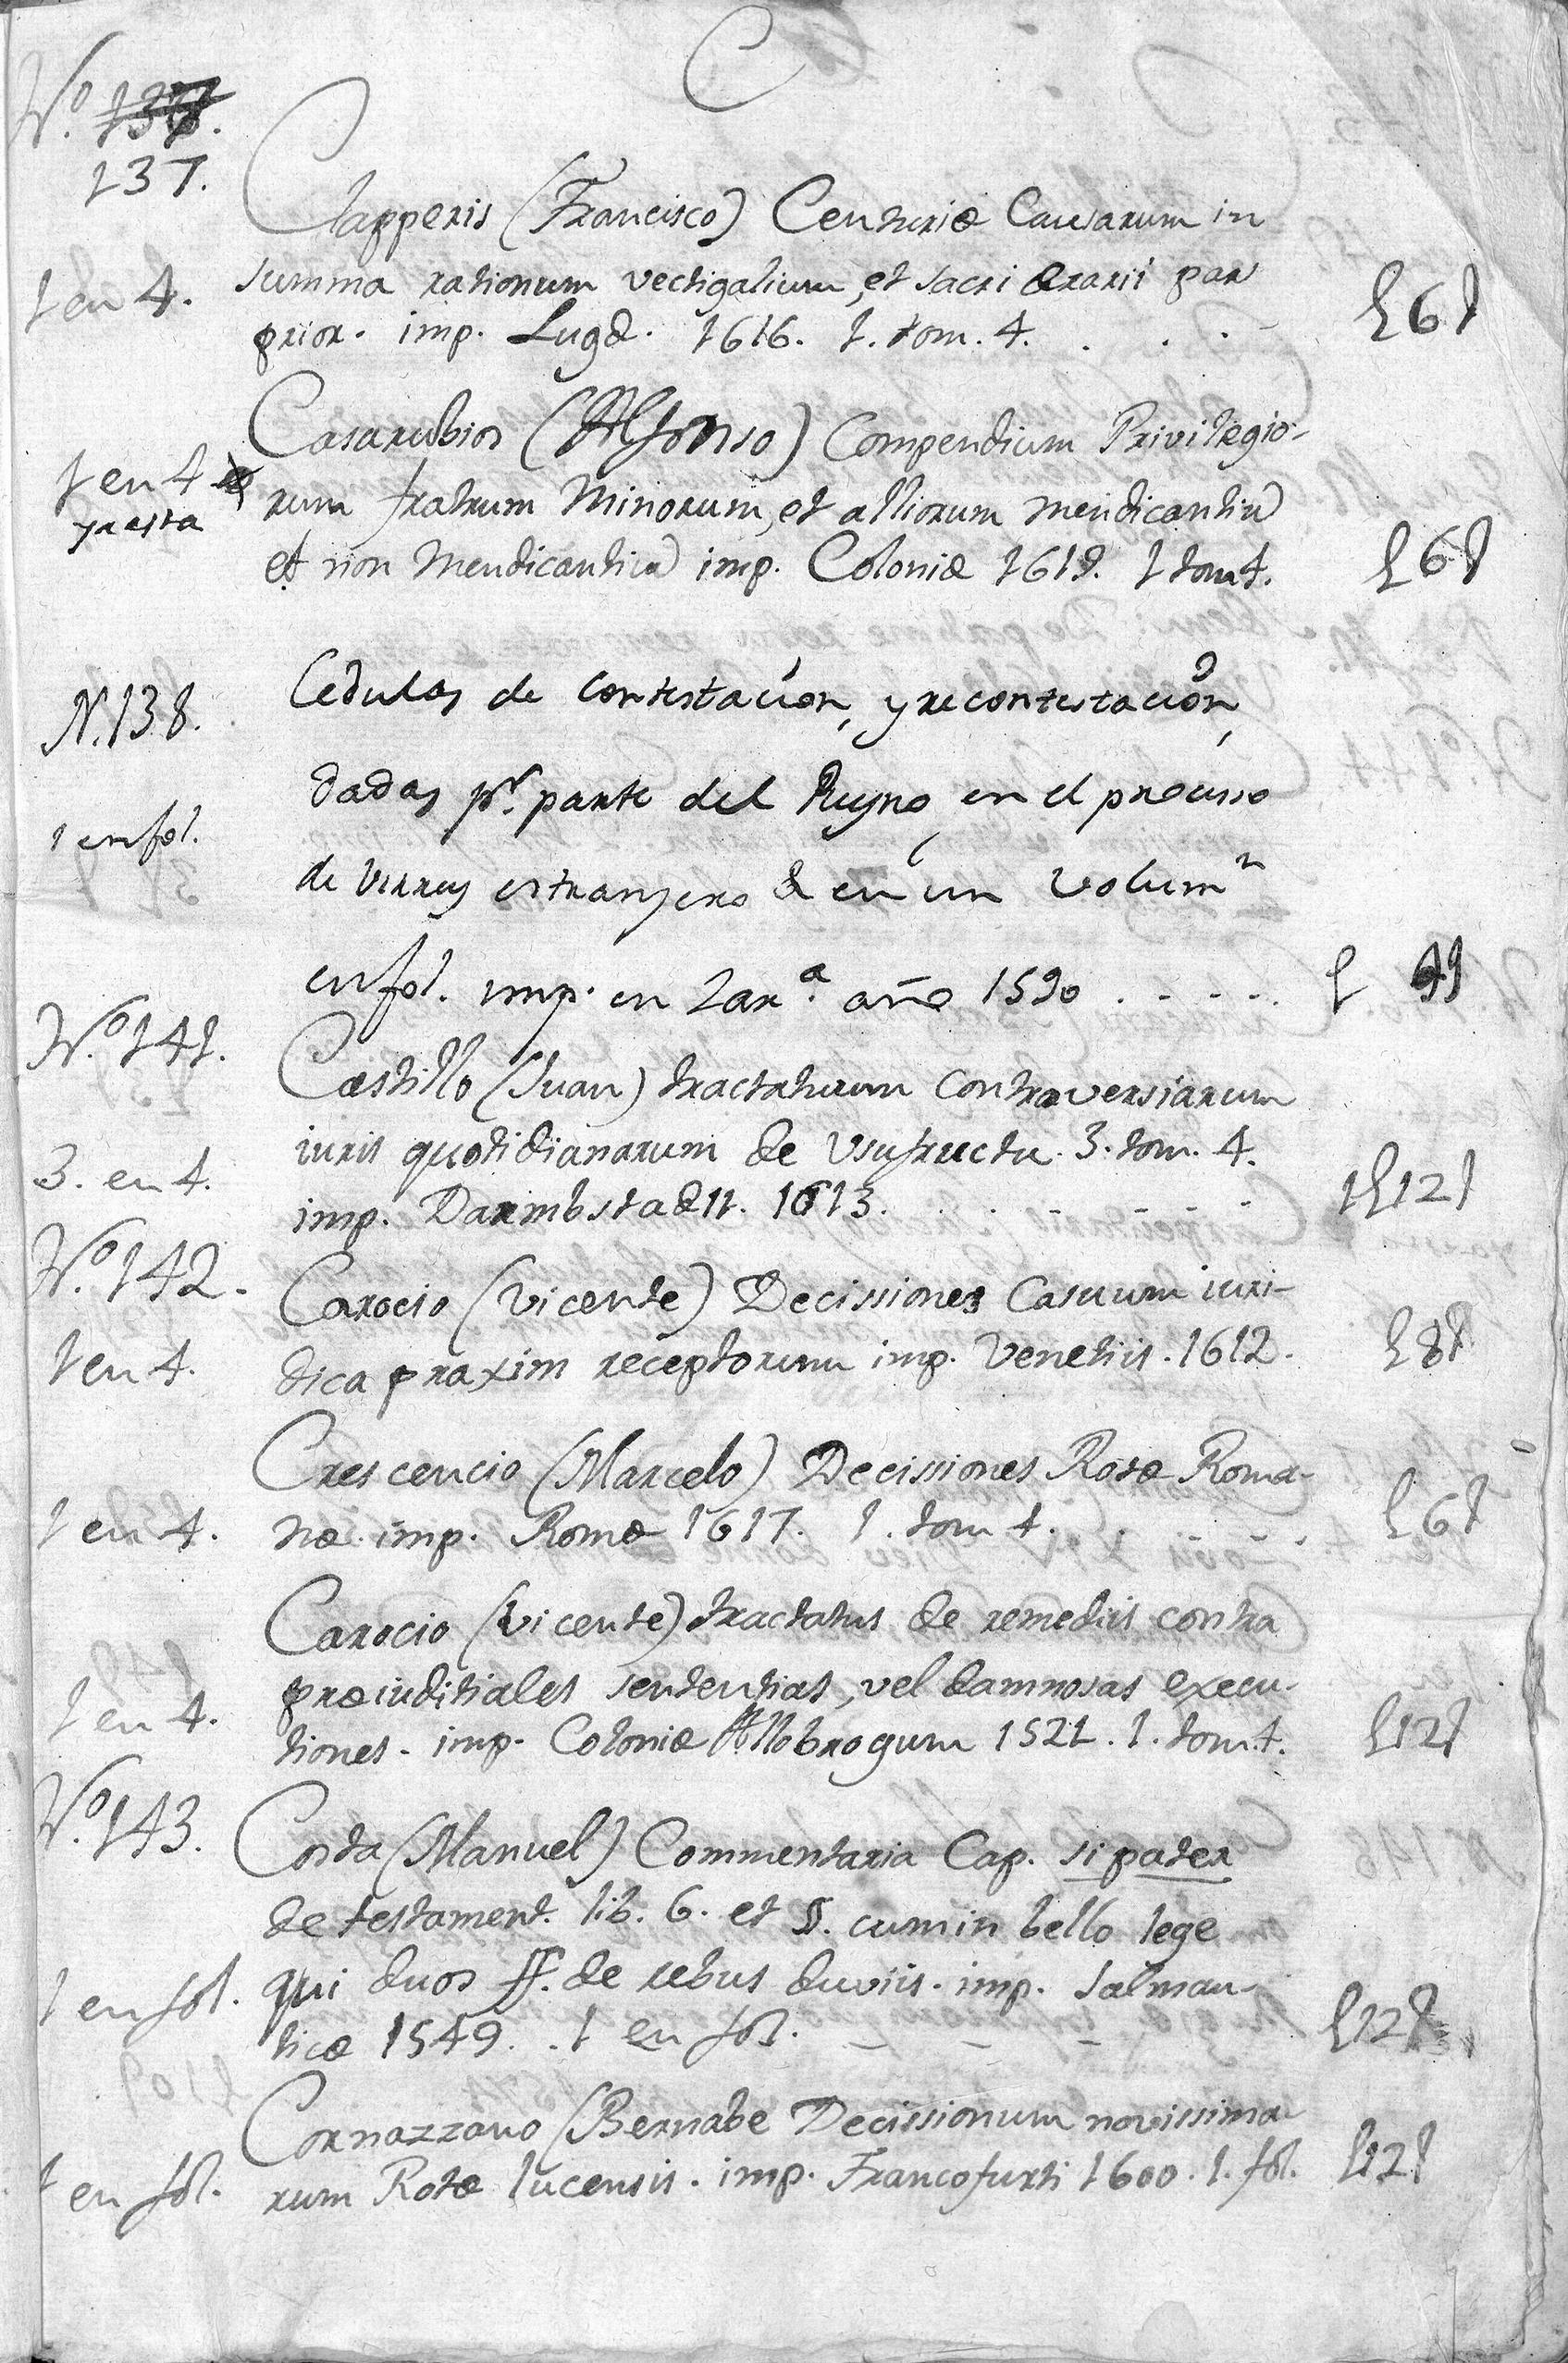 C
Nº. 137.
137.
Clapperis (Francisco) Centuriæ Causarum in
1 en 4. summa rationum vectigalium, et sacri ærarii par
prior. imp. Lugd. 1616. 1. tom. 4. . . . £6ſ
Casarubios (Alfonso) Compendium Privilegio-
1 en 4 rum fratrum Minorum, et alliorum mendicantiũ
y resta
et non Mendicantiũ imp. Coloniæ 1619. 1 tom 4. £6ſ
N. 138. Cedulas de contestacion, y recontestacion,
dadas pr. parte del Reyno en el processo
1 en fol.
de Virrey estranjero & en un volumn
en fol. imp. en Zara. año 1590 . - - - -. £ 4ſ
Nº. 141. Castillo (Juan) tractatuum Contraversiarum
iuris quotidianarum de Vsufructu. 3. tom. 4.
3. en 4.
imp. Darmbstadii. 1613. . . - - - - 1£12ſ
Nº. 142. Carocio (Vicente) Decissiones Casuum iuri-
1 en 4. dica praxim receptorum imp. Venetiis. 1612. £8ſ
Crescencio (Marcelo) Decissiones Rotæ Roma-
1 en 4. næ. imp. Romæ 1617. 1. tom 4. . . - - - . £6ſ
Carocio (Vicente) tractatus de remediis contra
præiuditiales sententias, vel damnosas execu-
1 en 4. tiones. imp. Coloniæ Allobrogum 1521. 1. tom. 4. £12ſ
Nº. 143. Costa (Manuel) Commentaria Cap. si pater
de testament. lib. 6. et §. cum in bello lege
1 en fol. qui duos ff. de rebus duviis. imp. Salman-
ticæ 1549. . 1 en fol. - - - £12ſ
Cornazzano (Bernabe Decissionum novissima-
1 en fol. rum Rotæ lucensis. imp. Francofurti 1600. 1. fol. £12ſ